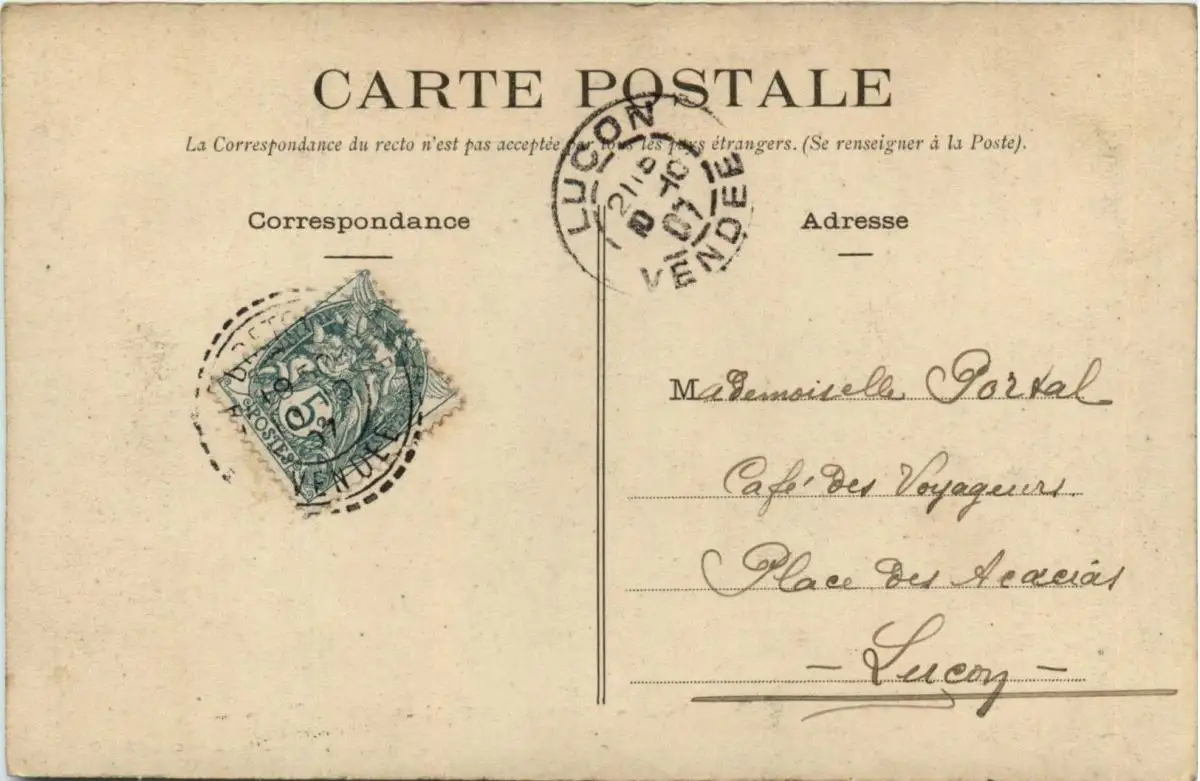 CARTE POSTALE
La Correspondance du recto n'est pas acceptée par tous les pays étrangers. (Se renseigner à la Poste).
LUÇON
VENDEE
Correspondance
Adresse
5
POSTES
VENDEE
Mademoiselle Portal
Café des Voyageurs.
Place des Acacias
- Luçon -